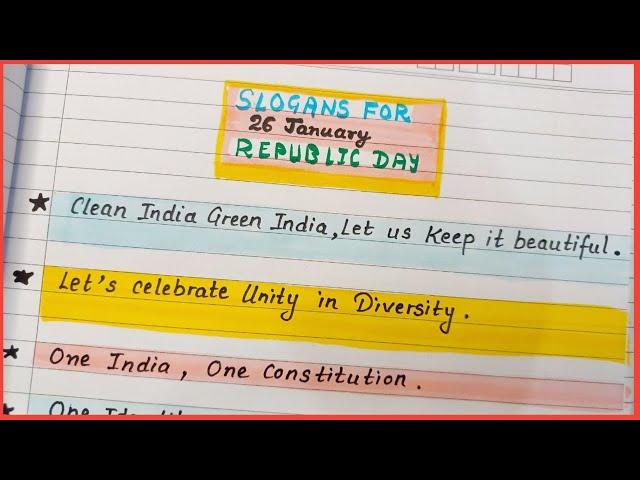 SLOGANS FOR
26 January
REPUBLIC DAY
★ Clean India Green India, Let us Keep it beautiful.
★ Let's celebrate Unity in Diversity.
★ One India, One Constitution.
One